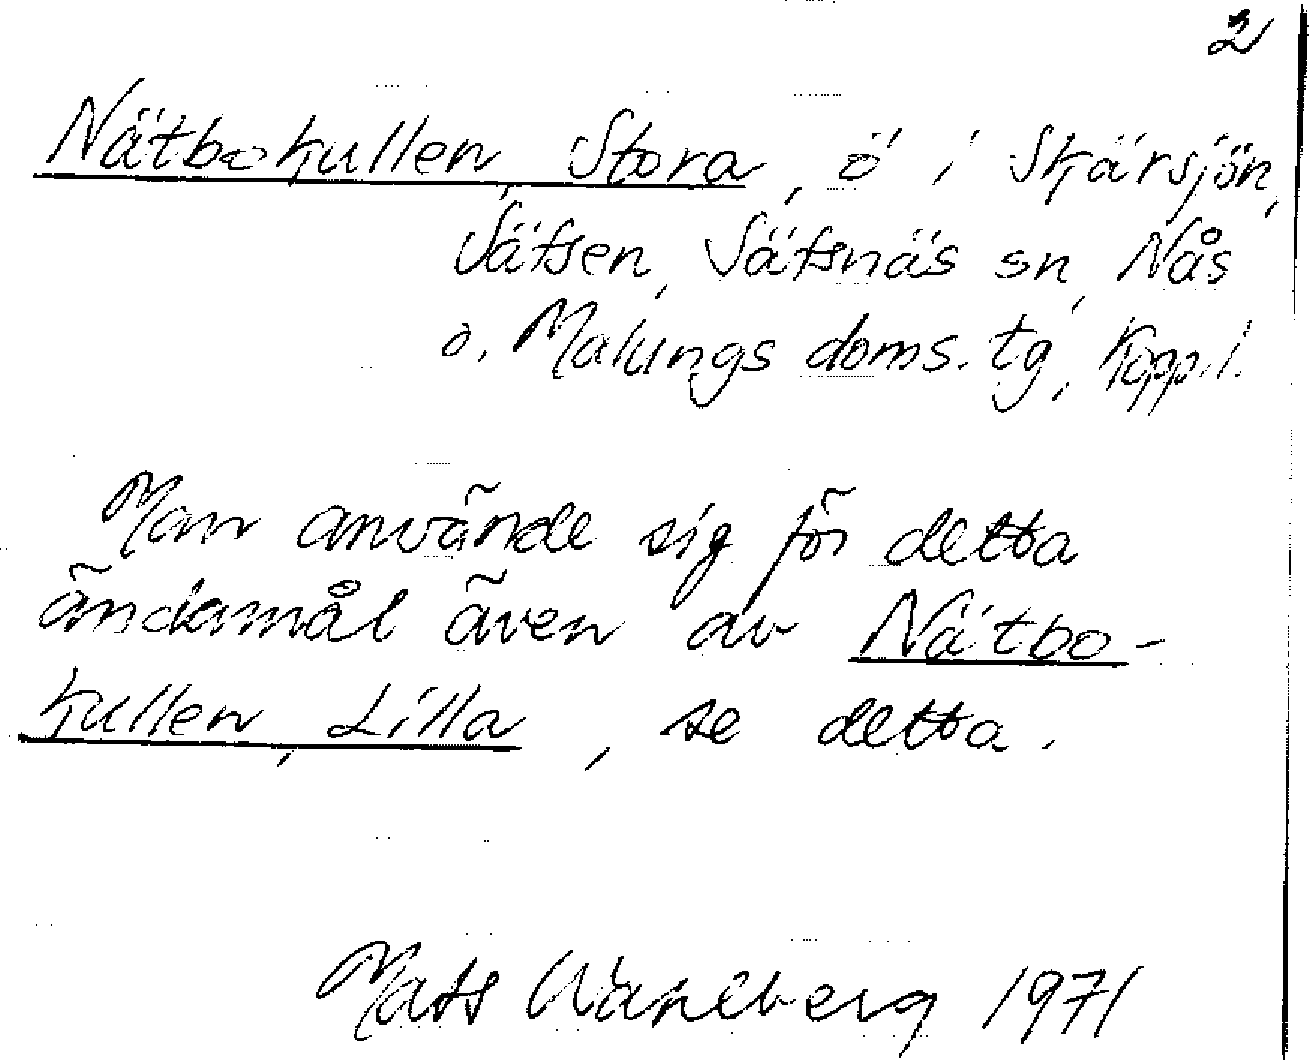 2
Nätbokullen, Stora, ö i Skärsjön,
Säfsen, Säfsnäs sn, Nås
o. Malungs doms. tg, Kopp.l.
Man använde sig för detta
ändamål även av Nätbo-
kullen, Lilla, se detta.
Mats Wahlberg 1971